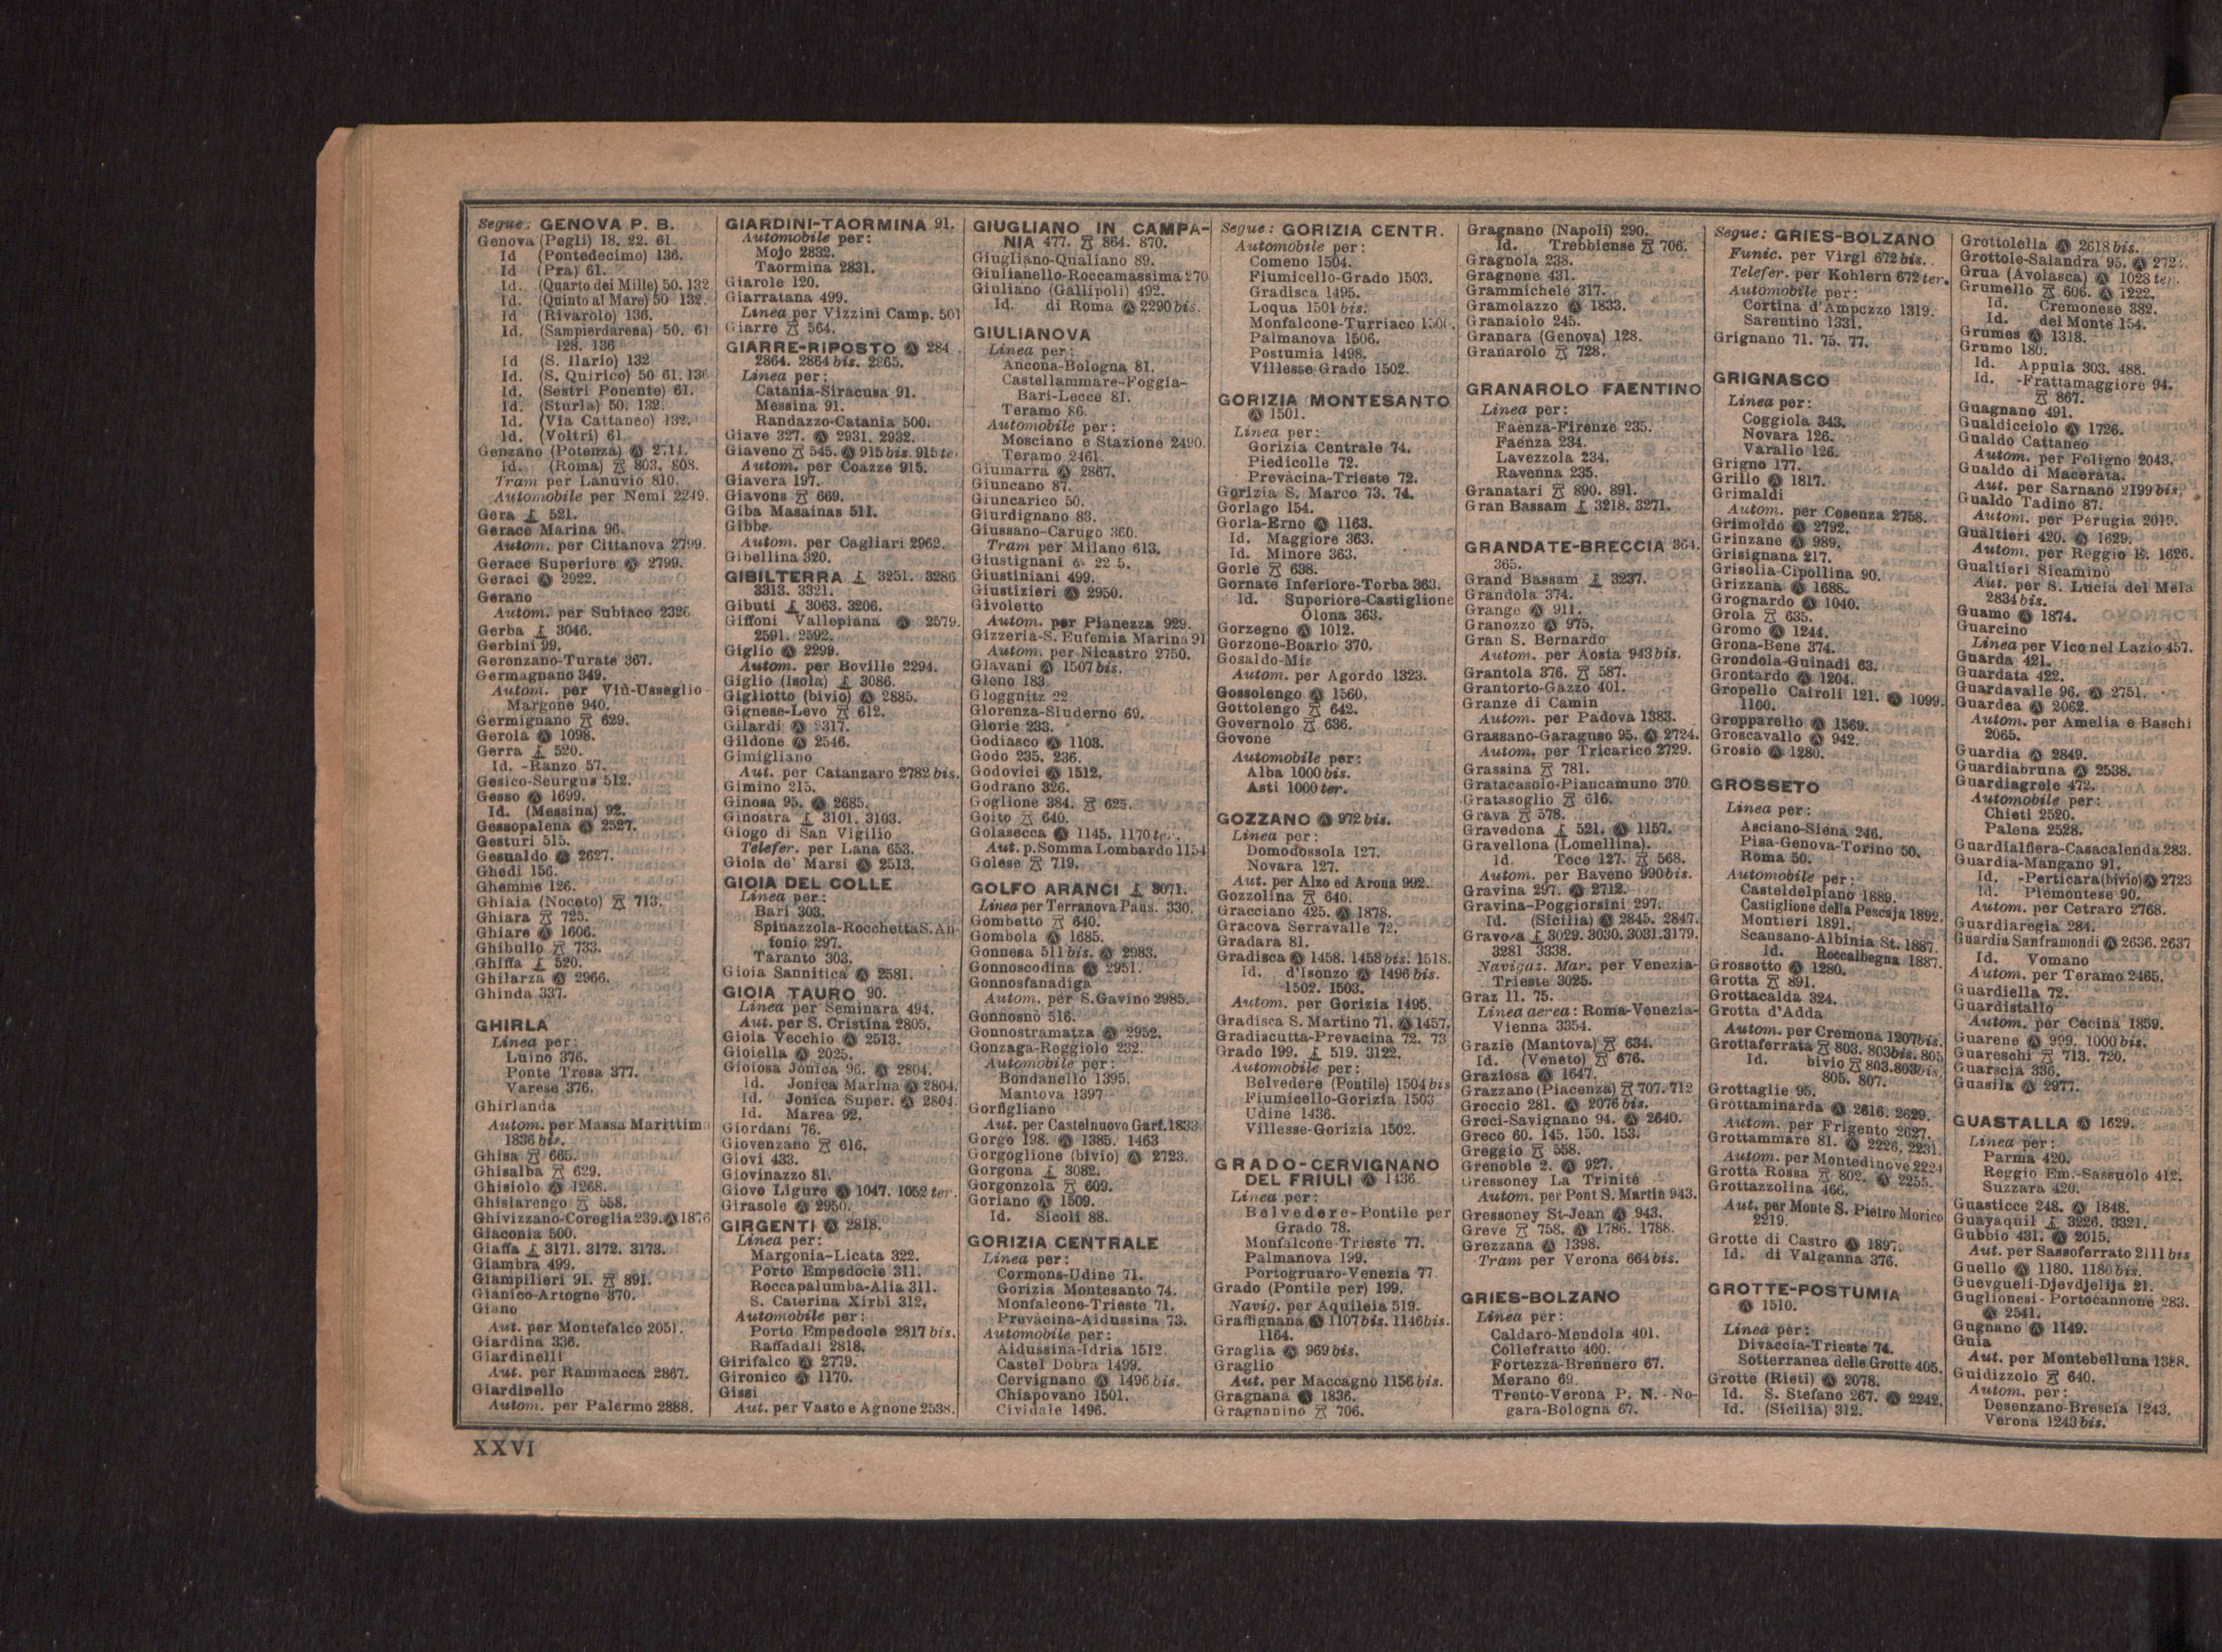 Segue: GENOVA P. B.
Genova (Pegli) 18. 22. 61.
Id (Pontedecimo) 136.
Id (Pra) 61.
Id. (Quarto dei Mille) 50. 132
Id. (Quinto al Mare) 50 132.
Id (Rivarolo) 136.
Id, (Sampierdarena) 50. 61
128. 136
Id (S. Ilario) 132
Id. (S. Quirico) 50 61. 136
Id, (Sestri Ponente) 61.
Id. (Sturla) 50. 132.
Id. (Via Cattaneo) 132.
Id. (Voltri) 61
Genzano (Potenza) Ⓐ 2711.
Id. (Roma) 803. 808.
Tram per Lanuvio 810.
Automobile per Nemi 2249.
Gera 521.
Gerace Marina 96.
Autom. per Cittanova 2799.
Gerace Superiore Ⓐ 2799.
Geraci Ⓐ 2922.
Gerano
Autom. per Subiaco 2326
Gerba 3046.
Gerbini 99.
Gerenzano-Turate 367.
Germagnano 349.
Autom. per Viù-Usseglio-
Margone 940.
Germignano 629.
Gerola Ⓐ 1098.
Gerra 520.
Id. -Ranzo 57.
Gesico-Seurgus 512.
Gesso Ⓐ 1699.
Id. (Messina) 92.
Gessopalena Ⓐ 2527.
Gesturi 515.
Gesualdo Ⓐ 2627.
Ghedi 156.
Ghemme 126.
Ghiaia (Noceto) 713.
Ghiara 725.
Ghiare Ⓐ 1606.
Ghibullo 733.
Ghiffa 520.
Ghilarza Ⓐ 2966.
Ghinda 337.
GHIRLA
Linea per:
Luino 376.
Ponte Tresa 377.
Varese 376.
Ghirlanda
Autom. per Massa Marittima
1836 bis.
Ghisa 665.
Ghisalba 629.
Ghisiolo Ⓐ 1268.
Ghislarengo 558.
Ghivizzano-Coreglia 239. Ⓐ 1876
Giaconia 500.
Giaffa 3171. 3172. 3173.
Giambra 499.
Giampilieri 91. 891.
Gianico-Artogne 370.
Giano
Aut. per Montefalco 2051.
Giardina 336.
Giardinelli
Aut. per Rammacca 2867.
Giardinello
Autom. per Palermo 2888.
GIARDINI-TAORMINA 91.
Automobile per:
Mojo 2832.
Taormina 2831.
Giarole 120.
Giarratana 499.
Linea per Vizzini Camp. 501
Giarre 564.
GIARRE-RIPOSTO Ⓐ 284
2864. 2864 bis. 2865.
Linea per:
Catania-Siracusa 91.
Messina 91.
Randazzo-Catania 500.
Giave 327. Ⓐ 2931. 2932.
Giaveno 545. Ⓐ 915 bis. 915 te
Autom. per Coazze 915.
Giavera 197.
Giavons 669.
Giba Masainas 511.
Gibba
Autom. per Cagliari 2962.
Gibellina 320.
GIBILTERRA 3251. 3286
3313. 3321.
Gibuti 3063. 3206.
Giffoni Vallepiana Ⓐ 2579.
2591. 2592.
Giglio Ⓐ 2299.
Autom. per Boville 2294.
Giglio (Isola) 3086.
Gigliotto (bivio) Ⓐ 2885.
Gignese-Levo 612.
Gilardi Ⓐ 2317.
Gildone Ⓐ 2546.
Gimigliano
Aut. per Catanzaro 2782 bis.
Gimino 215.
Ginosa 95. Ⓐ 2685.
Ginostra 3101. 3103.
Giogo di San Vigilio
Telefer. per Lana 653.
Gioia de' Marsi Ⓐ 2513.
GIOIA DEL COLLE
Linea per:
Bari 303.
Spinazzola-Rocchetta S. An
tonio 297.
Taranto 303.
Gioia Sannitica Ⓐ 2581.
GIOIA TAURO 90.
Linea per Seminara 494.
Aut. per S. Cristina 2805.
Gioia Vecchio Ⓐ 2513.
Gioiella Ⓐ 2025.
Gioiosa Jonica 96. Ⓐ 2804.
Id. Jonica Marina Ⓐ 2804.
Id. Jonica Super. Ⓐ 2804.
Id. Marea 92.
Giordani 76.
Giovenzano 616.
Giovi 433.
Giovinazzo 81.
Giovo Ligure Ⓐ 1047. 1052 ter.
Girasole Ⓐ 2950.
GIRGENTI Ⓐ 2818.
Linea per:
Margonia-Licata 322.
Porto Empedocle 311.
Roccapalumba-Alia 311.
S. Caterina Xirbi 312.
Automobile per:
Porto Empedocle 2817 bis.
Raffadali 2818.
Girifalco Ⓐ 2779.
Gironico Ⓐ 1170.
Gissi
Aut. per Vasto e Agnone 2538.
GIUGLIANO IN CAMPA-
NIA 477. 864. 870.
Giugliano-Qualiano 89.
Giulianello-Roccamassima 270
Giuliano (Gallipoli) 492.
Id. di Roma Ⓐ 2290 bis.
GIULIANOVA
Linea per:
Ancona-Bologna 81.
Castellammare-Foggia-
Bari-Lecce 81.
Teramo 86.
Automobile per:
Mosciano e Stazione 2490.
Teramo 2461.
Giumarra Ⓐ 2867.
Giuncano 87.
Giuncarico 50.
Giurdignano 83.
Giussano-Carugo 360.
Tram per Milano 613.
Giustignani
Giustiniani 499.
Giustizieri Ⓐ 2950.
Givoletto
Autom. per Pianezza 929.
Gizzeria-S. Eufemia Marina 91
Autom. per Nicastro 2750.
Glavani Ⓐ 1507 bis.
Gleno 183.
Gloggnitz 22.
Glorenza-Sluderno 69.
Glorie 233.
Godiasco Ⓐ 1103.
Godo 235. 236.
Godovici Ⓐ 1512.
Godrano 326.
Goglione 384. 625.
Goito 640.
Golasecca Ⓐ 1145. 1170 te
Aut. p. Somma Lombardo 1154
Golese 719.
GOLFO ARANCI 3071.
Linea per Terranova Paus. 330.
Gombetto 640.
Gombola Ⓐ 1685.
Gonnesa 511 bis. Ⓐ 2983.
Gonnoscodina Ⓐ 2951.
Gonnosfanadiga
Autom. per S. Gavino 2985.
Gonnosnò 516.
Gonnostramatza Ⓐ 2952.
Gonzaga-Reggiolo 232.
Automobile per:
Bondanello 1395.
Mantova 1397
Gorfigliano
Aut. per Castelnuovo Garf. 1833
Gorgo 198. Ⓐ 1385. 1463
Gorgoglione (bivio) Ⓐ 2723.
Gorgona 3082.
Gorgonzola 609.
Goriano Ⓐ 1509.
Id. Sicoli 88.
GORIZIA CENTRALE
Linea per:
Cormons-Udine 71.
Gorizia Montesanto 74.
Monfalcone-Trieste 71.
Prevacina-Aidussina 73.
Automobile per:
Aidussina-Idria 1512
Castel Dobra 1499.
Cervignano Ⓐ 1496 bis.
Chiapovano 1501.
Cividale 1496.
Segue: GORIZIA CENTR.
Automobile per:
Comeno 1504.
Fiumicello-Grado 1503.
Gradisca 1495.
Loqua 1501 bis.
Monfalcone-Turriaco
Palmanova 1506.
Postumia 1498.
Villesse-Grado 1502.
GORIZIA MONTESANTO
Ⓐ 1501.
Linea per:
Gorizia Centrale 74.
Piedicolle 72.
Prevacina-Trieste 72.
Gorizia S. Marco 73. 74.
Gorlago 154.
Gorla-Erno Ⓐ 1163.
Id. Maggiore 363.
Id. Minore 363.
Gorle 638.
Gornate Inferiore-Torba 363.
Id. Superiore-Castiglione
Olona 363.
Gorzegno Ⓐ 1012.
Gorzone-Boario 370.
Gosaldo-Mis
Autom. per Agordo 1323.
Gossolengo Ⓐ 1560.
Gottolengo 642.
Governolo 636.
Govone
Automobile per:
Alba 1000 bis.
Asti 1000 ter.
GOZZANO Ⓐ 972 bis.
Linea per:
Domodossola 127.
Novara 127.
Aut. per Alzo ed Arona 992.
Gozzolina 640.
Gracciano 425. Ⓐ 1878.
Gracova Serravalle 72.
Gradara 81.
Gradisca Ⓐ 1458. 1458 bis. 1518.
Id. d'Isonzo Ⓐ 1496 bis.
1502. 1503.
Autom. per Gorizia 1495.
Gradisca S. Martino 71. Ⓐ 1457.
Gradiscutta-Prevacina 72. 73
Grado 199. 519. 3122.
Automobile per:
Belvedere (Pontile) 1504 bis
Fiumicello-Gorizia 1503
Udine 1436.
Villesse-Gorizia 1502.
GRADO-CERVIGNANO
DEL FRIULI Ⓐ 1436
Linea per:
Belvedere-Pontile per
Grado 78.
Monfalcone-Trieste 77.
Palmanova 199.
Portogruaro-Venezia 77
Grado (Pontile per) 199.
Navig. per Aquileia 519.
Graffignana Ⓐ 1107 bis. 1146 bis.
1164.
Graglia Ⓐ 969 bis.
Graglio
Aut. per Maccagno 1156 bis.
Gragnana Ⓐ 1836.
Gragnanino 706.
Gragnano (Napoli) 290.
Id. Trebbiense 706.
Gragnola 238.
Gragnone 431.
Grammichele 317.
Gramolazzo Ⓐ 1833.
Granaiolo 245.
Granara (Genova) 128.
Granarolo 728.
GRANAROLO FAENTINO
Linea per:
Faenza-Firenze 235.
Faenza 234.
Lavezzola 234.
Ravenna 235.
Granatari 890. 891.
Gran Bassam 3218. 3271.
GRANDATE-BRECCIA 364.
365.
Grand Bassam 3237.
Grandola 374.
Grange Ⓐ 911.
Granozzo Ⓐ 975.
Gran S. Bernardo
Autom. per Aosta 943 bis.
Grantola 376. 587.
Grantorto-Gazzo 401.
Granze di Camin
Autom. per Padova 1383.
Grassano-Garaguso 95. Ⓐ 2724.
Autom. per Tricarico 2729.
Grassina 781.
Gratacasolo-Piancamuno 370
Gratasoglio 616.
Grava 578.
Gravedona 521. Ⓐ 1157.
Gravellona (Lomellina).
Id. Toce 127. 568.
Autom. per Baveno 990 bis.
Gravina 297. Ⓐ 2712.
Gravina-Poggiorsini 297.
Id. (Sicilia) Ⓐ 2845. 2847.
Gravosa 3029. 3030. 3031. 3179.
3281 3338.
Navigaz. Mar. per Venezia-
Trieste 3025.
Graz 11. 75.
Linea aerea: Roma-Venezia-
Vienna 3354.
Grazie (Mantova) 634.
Id. (Veneto) 676.
Graziosa Ⓐ 1647.
Grazzano (Piacenza) 707. 712
Greccio 281. Ⓐ 2076 bis.
Greci-Savignano 94. Ⓐ 2640.
Greco 60. 145. 150. 153.
Greggio 558.
Grenoble 2. Ⓐ 927.
Gressoney La Trinité
Autom. per Pont S. Martin 943.
Gressoney St-Jean Ⓐ 943.
Greve 758. Ⓐ 1786. 1788.
Grezzana Ⓐ 1398.
Tram per Verona 664 bis.
GRIES-BOLZANO
Linea per:
Caldaro-Mendola 401.
Collefratto 400.
Fortezza-Brennero 67.
Merano 69.
Trento-Verona P. N. - No-
gara-Bologna 67.
Segue: GRIES-BOLZANO
Funic. per Virgl 672 bis.
Telefer. per Kohlern 672 ter.
Automobile per:
Cortina d'Ampezzo 1319.
Sarentino 1331.
Grignano 71. 75. 77.
GRIGNASCO
Linea per:
Coggiola 343.
Novara 126.
Varallo 126.
Grigno 177.
Grillo Ⓐ 1817.
Grimaldi
Autom. per Cosenza 2758.
Grimoldo Ⓐ 2792.
Grinzane Ⓐ 989.
Grisignana 217.
Grisolia-Cipollina 90.
Grizzana Ⓐ 1688.
Grognardo Ⓐ 1040.
Grola 635.
Gromo Ⓐ 1244.
Grona-Bene 374.
Grondola-Guinadi 63.
Grontardo Ⓐ 1204.
Gropello Cairoli 121. Ⓐ 1099.
1100.
Gropparello Ⓐ 1569.
Groscavallo Ⓐ 942.
Grosio Ⓐ 1280.
GROSSETO
Linea per:
Asciano-Siena 246.
Pisa-Genova-Torino 50.
Roma 50.
Automobile per:
Casteldelpiano 1889.
Castiglione della Pescaja 1892.
Montieri 1891.
Scansano-Albinia St. 1887.
Id. Roccalbegna 1887.
Grossotto Ⓐ 1280.
Grotta 891.
Grottacalda 324.
Grotta d'Adda
Autom. per Cremona 1207 bis.
Grottaferrata 803. 803 bis. 805
Id. bivio 803. 803 bis.
805. 807.
Grottaglie 95.
Grottaminarda Ⓐ 2616. 2629.
Autom. per Frigento 2627.
Grottammare 81. Ⓐ 2226. 2231.
Autom. per Montedinove 2224
Grotta Rossa 802. Ⓐ 2255.
Grottazzolina 466.
Aut. per Monte S. Pietro Morico
2219.
Grotte di Castro Ⓐ 1897.
Id. di Valganna 376.
GROTTE-POSTUMIA
Ⓐ 1510.
Linea per:
Divaccia-Trieste 74.
Sotterranea delle Grotte 405.
Grotte (Rieti) Ⓐ 2078.
Id. S. Stefano 267. Ⓐ 2242.
Id. (Sicilia) 312.
Grottolella Ⓐ 2618 bis.
Grottole-Salandra 95. Ⓐ 272
Grua (Avolasca) Ⓐ 1028 ter.
Grumello 606. Ⓐ 1222.
Id. Cremonese 382.
Id. del Monte 154.
Grumes Ⓐ 1318.
Grumo 180.
Id. Appula 303. 488.
Id. -Frattamaggiore 94.
867.
Guagnano 491.
Gualdicciolo Ⓐ 1726.
Gualdo Cattaneo
Autom. per Foligno 2043.
Gualdo di Macerata.
Aut. per Sarnano 2199 bis.
Gualdo Tadino 87.
Autom. per Perugia 2019.
Gualtieri 420. Ⓐ 1629.
Autom. per Reggio E. 1626.
Gualtieri Sicaminò
Aut. per S. Lucia del Mela
2834 bis.
Guamo Ⓐ 1874.
Guarcino
Linea per Vico nel Lazio 457.
Guarda 421.
Guardata 422.
Guardavalle 96. Ⓐ 2751.
Guardea Ⓐ 2062.
Autom. per Amelia e Baschi
2065.
Guardia Ⓐ 2849.
Guardiabruna Ⓐ 2538.
Guardiagrele 472.
Automobile per:
Chieti 2520.
Palena 2528.
Guardialfiera-Casacalenda 283.
Guardia-Mangano 91.
Id. -Perticara (bivio) Ⓐ 2723
Id. Piemontese 90.
Autom. per Cetraro 2768.
Guardiaregia 284.
Guardia Sanframondi Ⓐ 2636. 2637
Id. Vomano
Autom. per Teramo 2465.
Guardiella 72.
Guardistallo
Autom. per Cecina 1859.
Guarene Ⓐ 999. 1000 bis.
Guareschi 713. 720.
Guarscia 336.
Guasila Ⓐ 2977.
GUASTALLA Ⓐ 1629.
Linea per:
Parma 420.
Reggio Em.-Sassuolo 412.
Suzzara 420.
Guasticce 248. Ⓐ 1848.
Guayaquil 3226. 3321.
Gubbio 431. Ⓐ 2015.
Aut. per Sassoferrato 2111 bis
Guello Ⓐ 1180. 1180 bis.
Guevgueli-Djevdjelija 21.
Guglionesi-Portocannone 283.
Ⓐ 2541.
Gugnano Ⓐ 1149.
Guia
Aut. per Montebelluna 1388.
Guidizzolo 640.
Autom. per:
Desenzano-Brescia 1243.
Verona 1243 bis.
XXVI